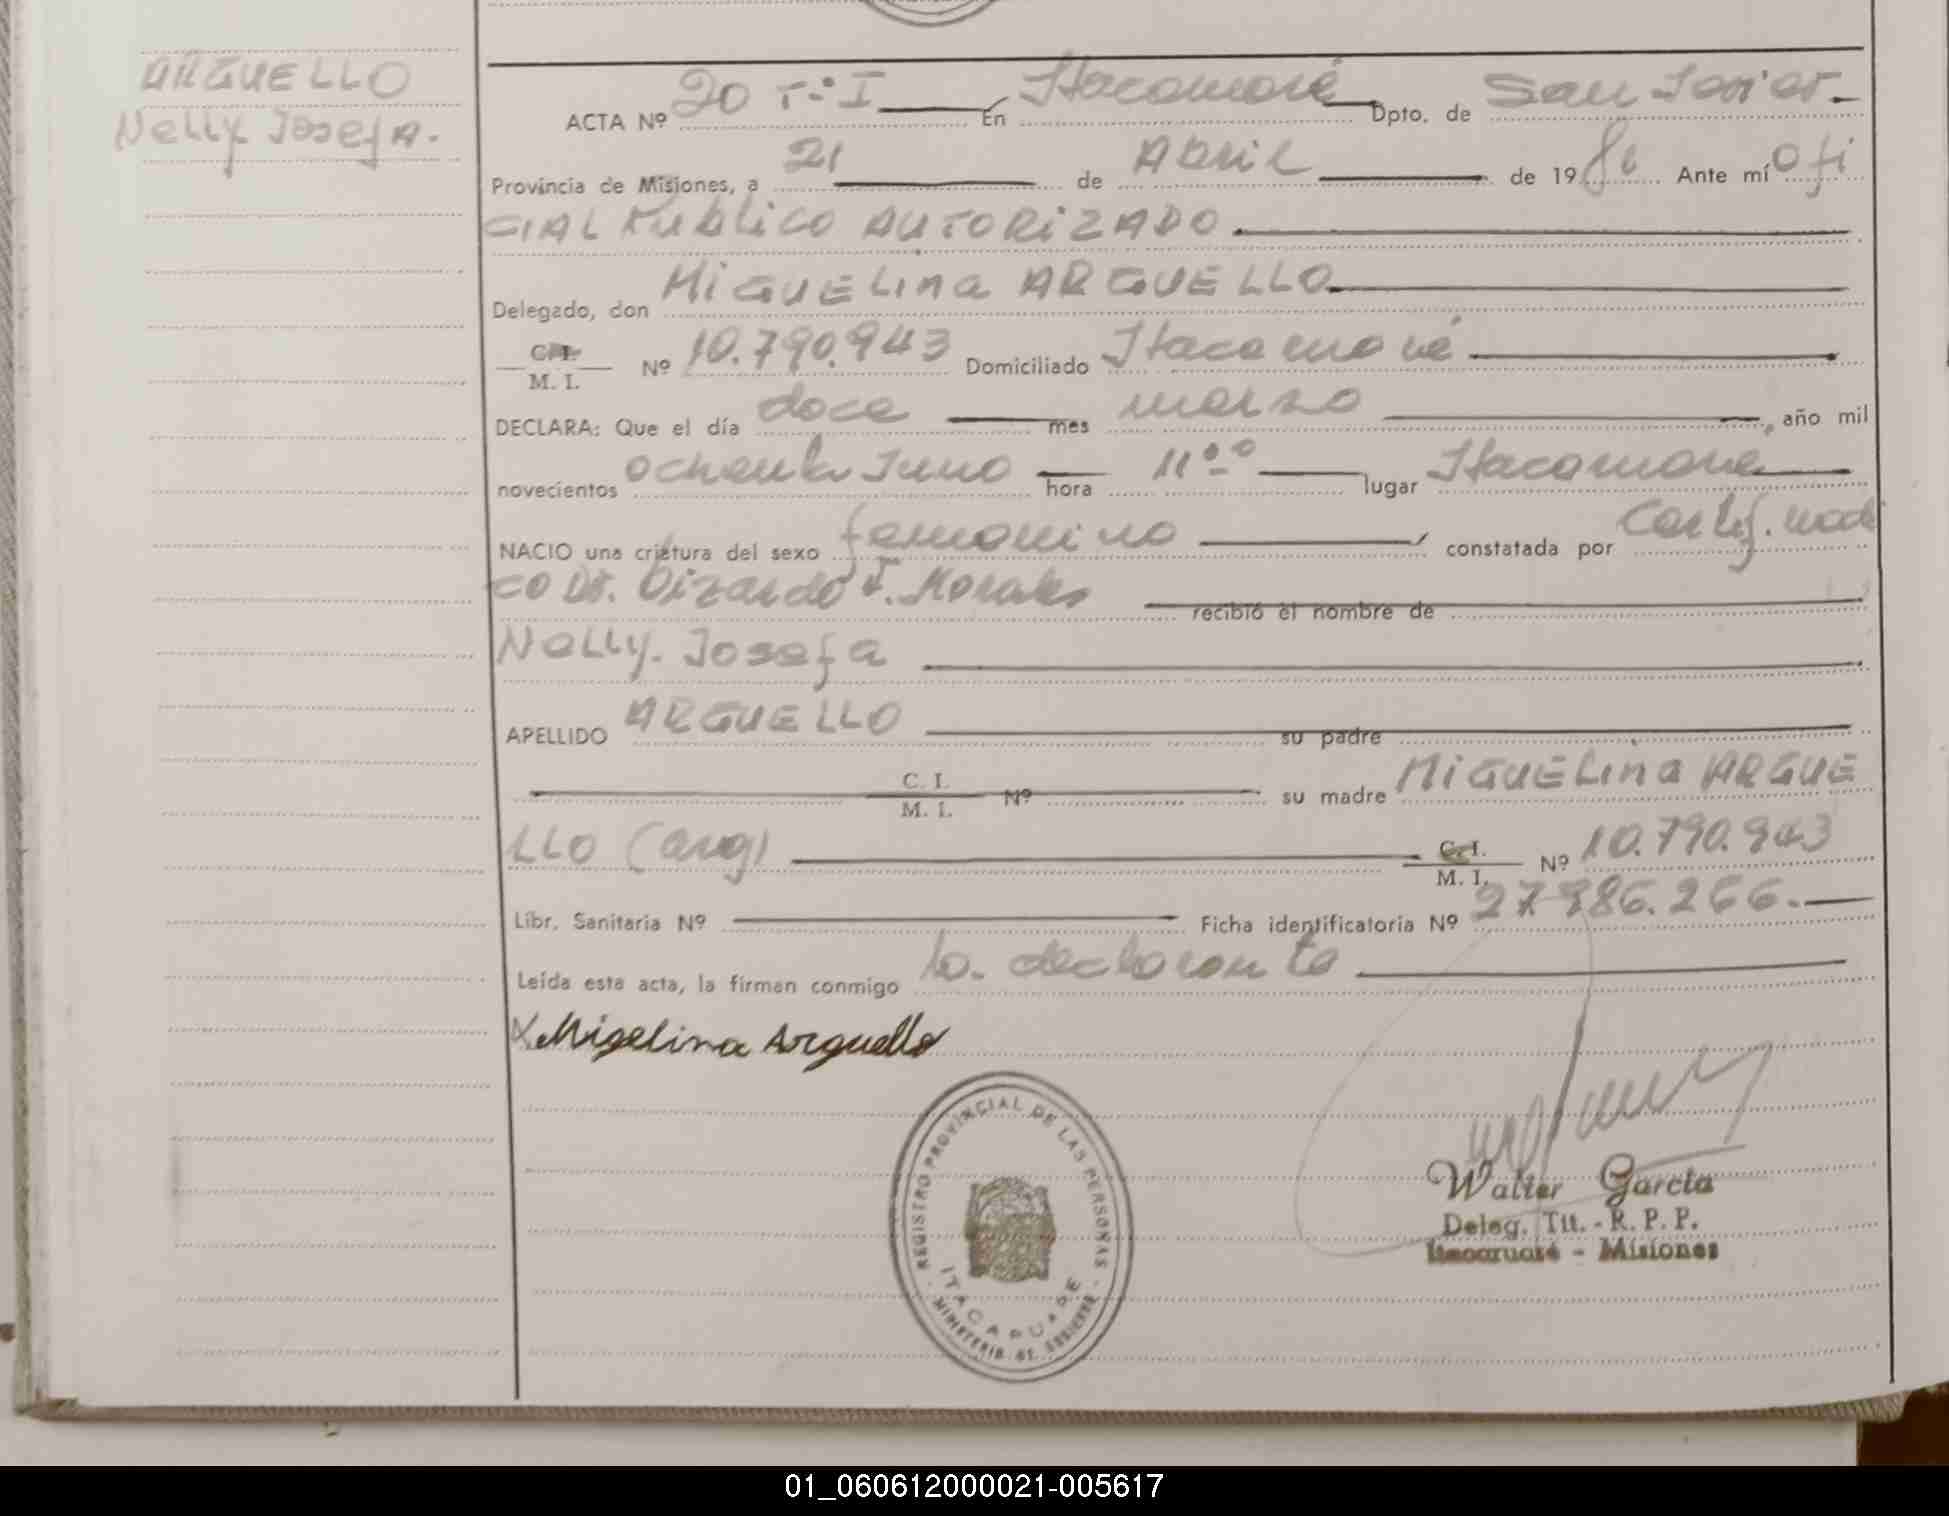 ARGUELLO
Nelly Josefa.
ACTA Nº 20 T.º I En Itacaruaré Dpto. de San Javier.
Provincia de Misiones, a 21 de Abril de 19 Ante mí Ofi
CIAL Publico AUTORIZADO
Delegado, don MiGUELina ARGUELLO
C. I.
M. I. Nº 10.790.943 Domiciliado Itacaruaré
DECLARA: Que el día doce mes marzo , año mil
novecientos ochenta y uno hora 11ºº lugar Itacaruare
NACIO una criatura del sexo femenino constatada por Certif. medi
co Dr. F. Morales recibió el nombre de
Nelly. Josefa
APELLIDO ARGUELLO su padre
C. I.
M. I. Nº su madre MiGUELina ARGUE
LLO (arg) C. I.
M. I. Nº 10.790.943
Libr. Sanitaria Nº Ficha identificatoria Nº 27.986.266.
Leída esta acta, la firman conmigo la declarante
X Migelina Arguello
REGISTRO PROVINCIAL DE LAS PERSONAS
ITACARUARE
MINISTERIO DE GOBIERNO
Walter García
Deleg. Tit. - R. P. P.
Itacaruaré - Misiones
01_060612000021-005617